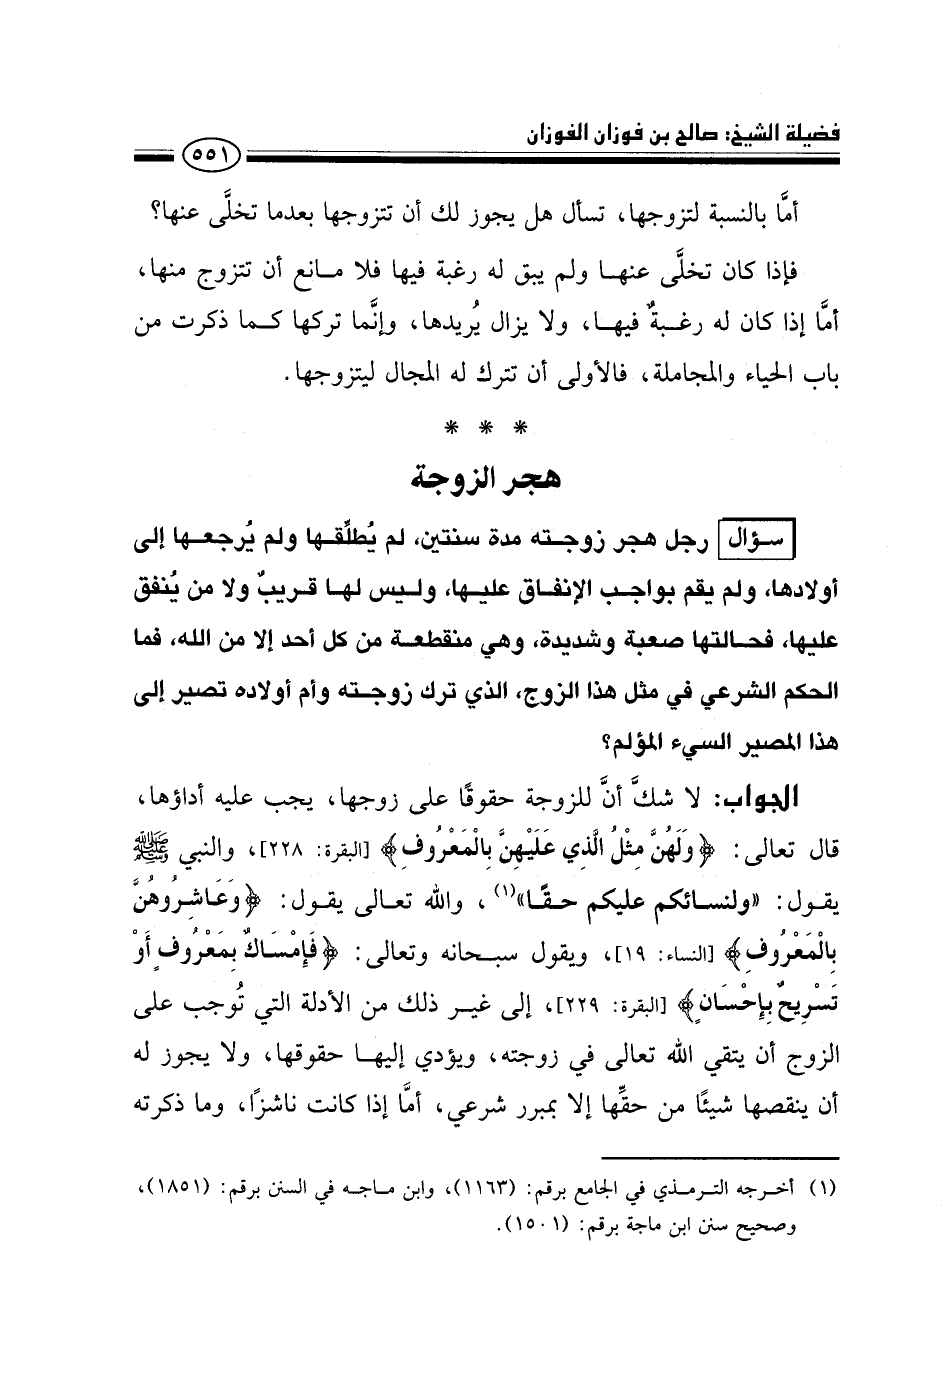 فضيلة الشيخ: صالح بن فوزان الفوزان
٥٥١
أمَّا بالنسبة لتزوجها، تسأل هل يجوز لك أن تتزوجها بعدما تخلَّى عنها؟
فإذا كان تخلَّى عنهـا ولم يبق له رغبة فيها فلا مـانع أن تتزوج منها،
أمَّا إذا كان له رغـبةٌ فيهـا، ولا يزال يُريدها، وإنَّما تركها كـما ذكرت من
باب الحياء والمجاملة، فالأولى أن تترك له المجال ليتزوجها.
* * *
هجر الزوجة
سـؤال رجل هجر زوجـته مدة سنتين، لم يُطلِّقـها ولم يُرجعـها إلى
أولادها، ولم يقم بواجـب الإنفـاق عليـها، وليـس لـها قـريبٌ ولا من يُنفق
عليها، فحـالتها صعبة وشديدة، وهي منقطعـة من كل أحد إلا من الله، فما
الحكم الشرعي في مثل هذا الزوج، الذي ترك زوجـته وأم أولاده تصير إلى
هذا المصير السيء المؤلم؟
الجواب: لا شكَّ أنَّ للزوجة حقوقًا على زوجها، يجب عليه أداؤها،
قال تعالى: ﴿وَلَهُنَّ مِثْلُ الَّذِي عَلَيْهِنَّ بِالْمَعْرُوفِ﴾ [البقرة: ٢٢٨]، والنبي ﷺ
يقـول: «ولنسـائكم عليكم حـقًـا»(١)، والله تعـالى يقـول: ﴿وَعَاشِرُوهُنَّ
بِالْمَعْرُوفِ﴾ [النساء: ١٩]، ويقول سبـحانه وتعالى: ﴿فَإِمْسَاكٌ بِمَعْرُوفٍ أَوْ
تَسْرِيحٌ بِإِحْسَانٍ﴾ [البقرة: ٢٢٩]، إلى غيـر ذلك من الأدلة التي تُوجب على
الزوج أن يتقي الله تعالى في زوجته، ويؤدي إليهـا حقوقها، ولا يجوز له
أن ينقصها شيئًا من حقِّها إلا بمبرر شرعي، أمَّا إذا كانت ناشزًا، وما ذكرته
(١) أخـرجه التـرمـذي في الجامع برقم: (١١٦٣)، وابن مـاجـه في السنن برقم: (١٨٥١)،
وصحيح سنن ابن ماجة برقم: (١٥٠١).